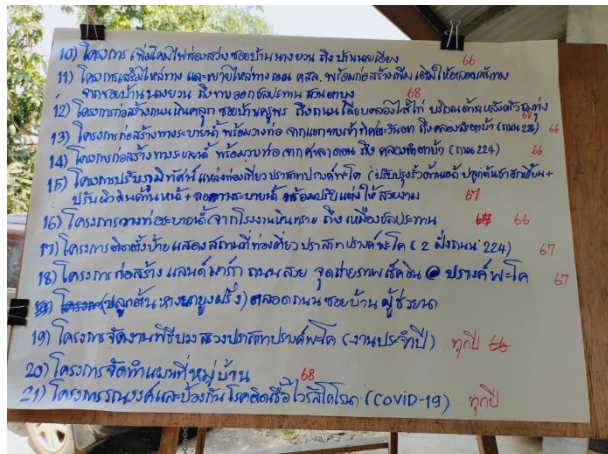 10) โครงการ เพิ่มโคมไฟส่องสว่าง ซอยบ้านนางยวน ถึง บ้านนายเอียง 66
11) โครงการเสริมไหล่ทาง และขยายไหล่ทาง ถนน คสล. พร้อมก่อสร้างเพิ่มเติมให้ตลอดเส้นทาง
จากซอยบ้านนางยวน ถึงทางออกชลประทาน สวนตาบง 68
12) โครงการก่อสร้างถนนหินคลุก ซอยบ้านครูพร ถึงถนนเลียบคลองไส้ไก่ บริเวณด้านหลังทุ่ง 68
13) โครงการก่อสร้างทางระบายน้ำ พร้อมวางท่อ จาก ถึงคลองตาบ้า (ถนน 224) 66
14) โครงการก่อสร้างทางระบายน้ำ พร้อมวางท่อ จากศาลาดอน ถึง คลองตาบ้า (ถนน 224) 66
15) โครงการปรับภูมิทัศน์ แหล่งท่องเที่ยว ปราสาทปรางค์พะโค (ปรับปรุงรั้วด้านหน้า ปลูกต้นราชาเขียน +
ปรับผิวดินด้านหน้า + ลอกทางระบายน้ำ พร้อมปรับแต่งให้สวยงาม 67
16) โครงการวางท่อระบายน้ำจากโรงงานหินทราย ถึง เหมืองชลประทาน 66
17) โครงการติดตั้งป้ายแสดงสถานที่ท่องเที่ยว ปราสาทปรางค์พะโค (2 ฝั่งถนน 224) 67
18) โครงการก่อสร้าง แลนด์มาร์ก ถนนสวย จุดถ่ายภาพเช็คอิน @ ปรางค์พะโค 67
โครงการ(ปลูกต้นหางนกยูงฝรั่ง) ตลอดถนนซอยบ้านผู้ช่วยนก
19) โครงการจัดงานพิธีบวงสรวงปราสาทปรางค์พะโค (งานประจำปี) ทุกปี 66
20) โครงการจัดทำแผนที่หมู่บ้าน 68
21) โครงการรณรงค์และป้องกันโรคติดเชื้อไวรัสโคโรนา (COVID-19) ทุกปี